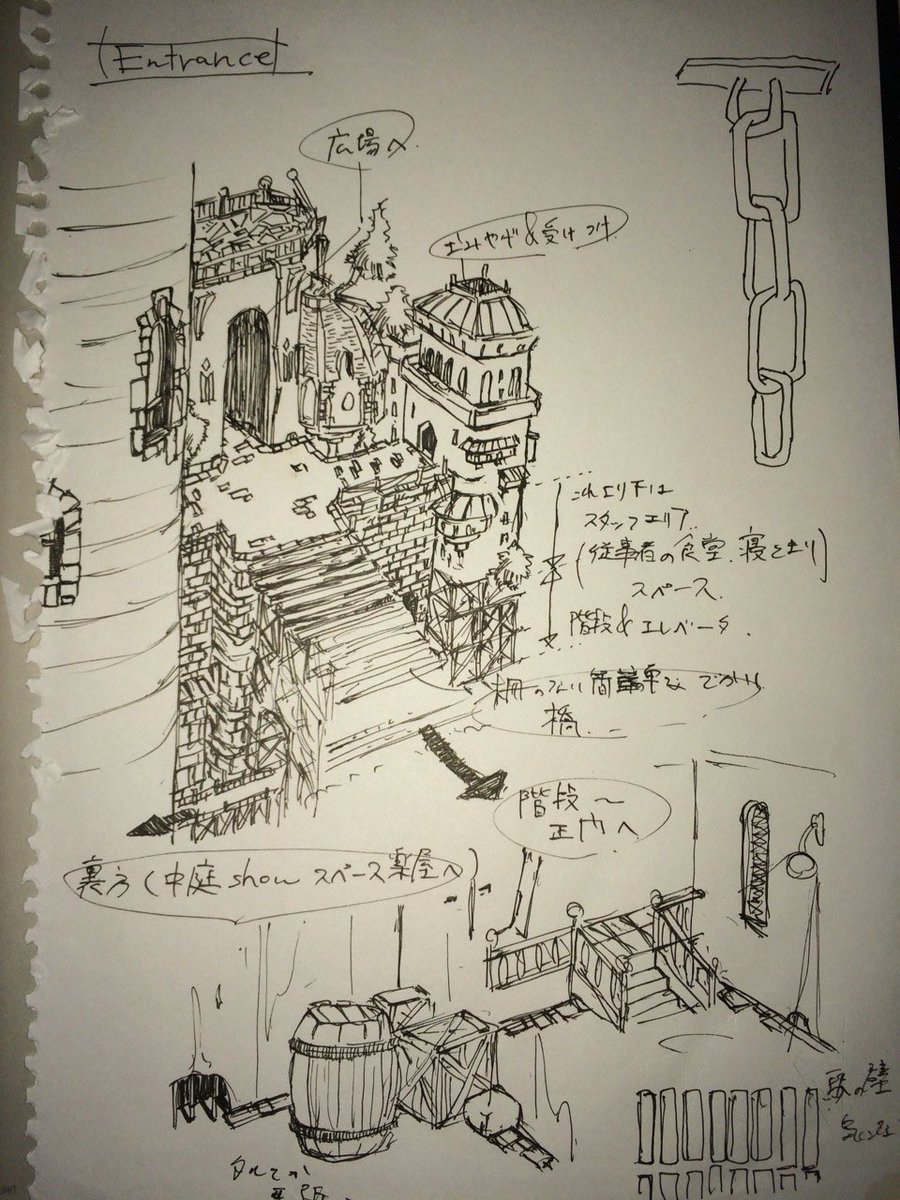 Entrance
広場へ
おみやげ&受けつけ
これより下は
スタッフエリア
(従事者の食堂、寝とまり)
スペース
階段&エレベータ.
柵のない簡単な
橋
階段〜
正門へ
裏方(中庭showスペース楽屋へ)
タルとか
の壁